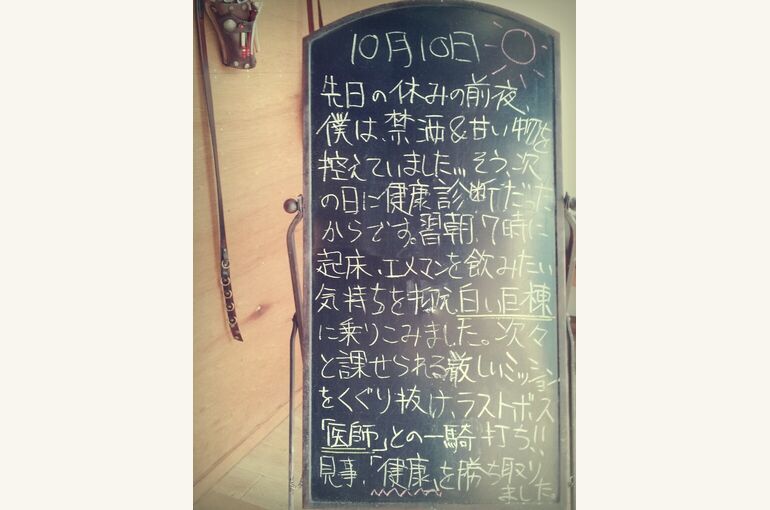 10月10日
先日の休みの前夜、
僕は、禁酒&甘い物を
控えていました… そう、次
の日に健康診断だった
からです。習朝、7時に
起床、エメマンを飲みたい
気持ちを抑え、白い巨棟
に乗りこみました。次々
と課せられる厳しいミッション
をくぐり抜け、ラストボス
「医師」との一騎打ち!!
見事、「健康」を勝ち取り
ました。